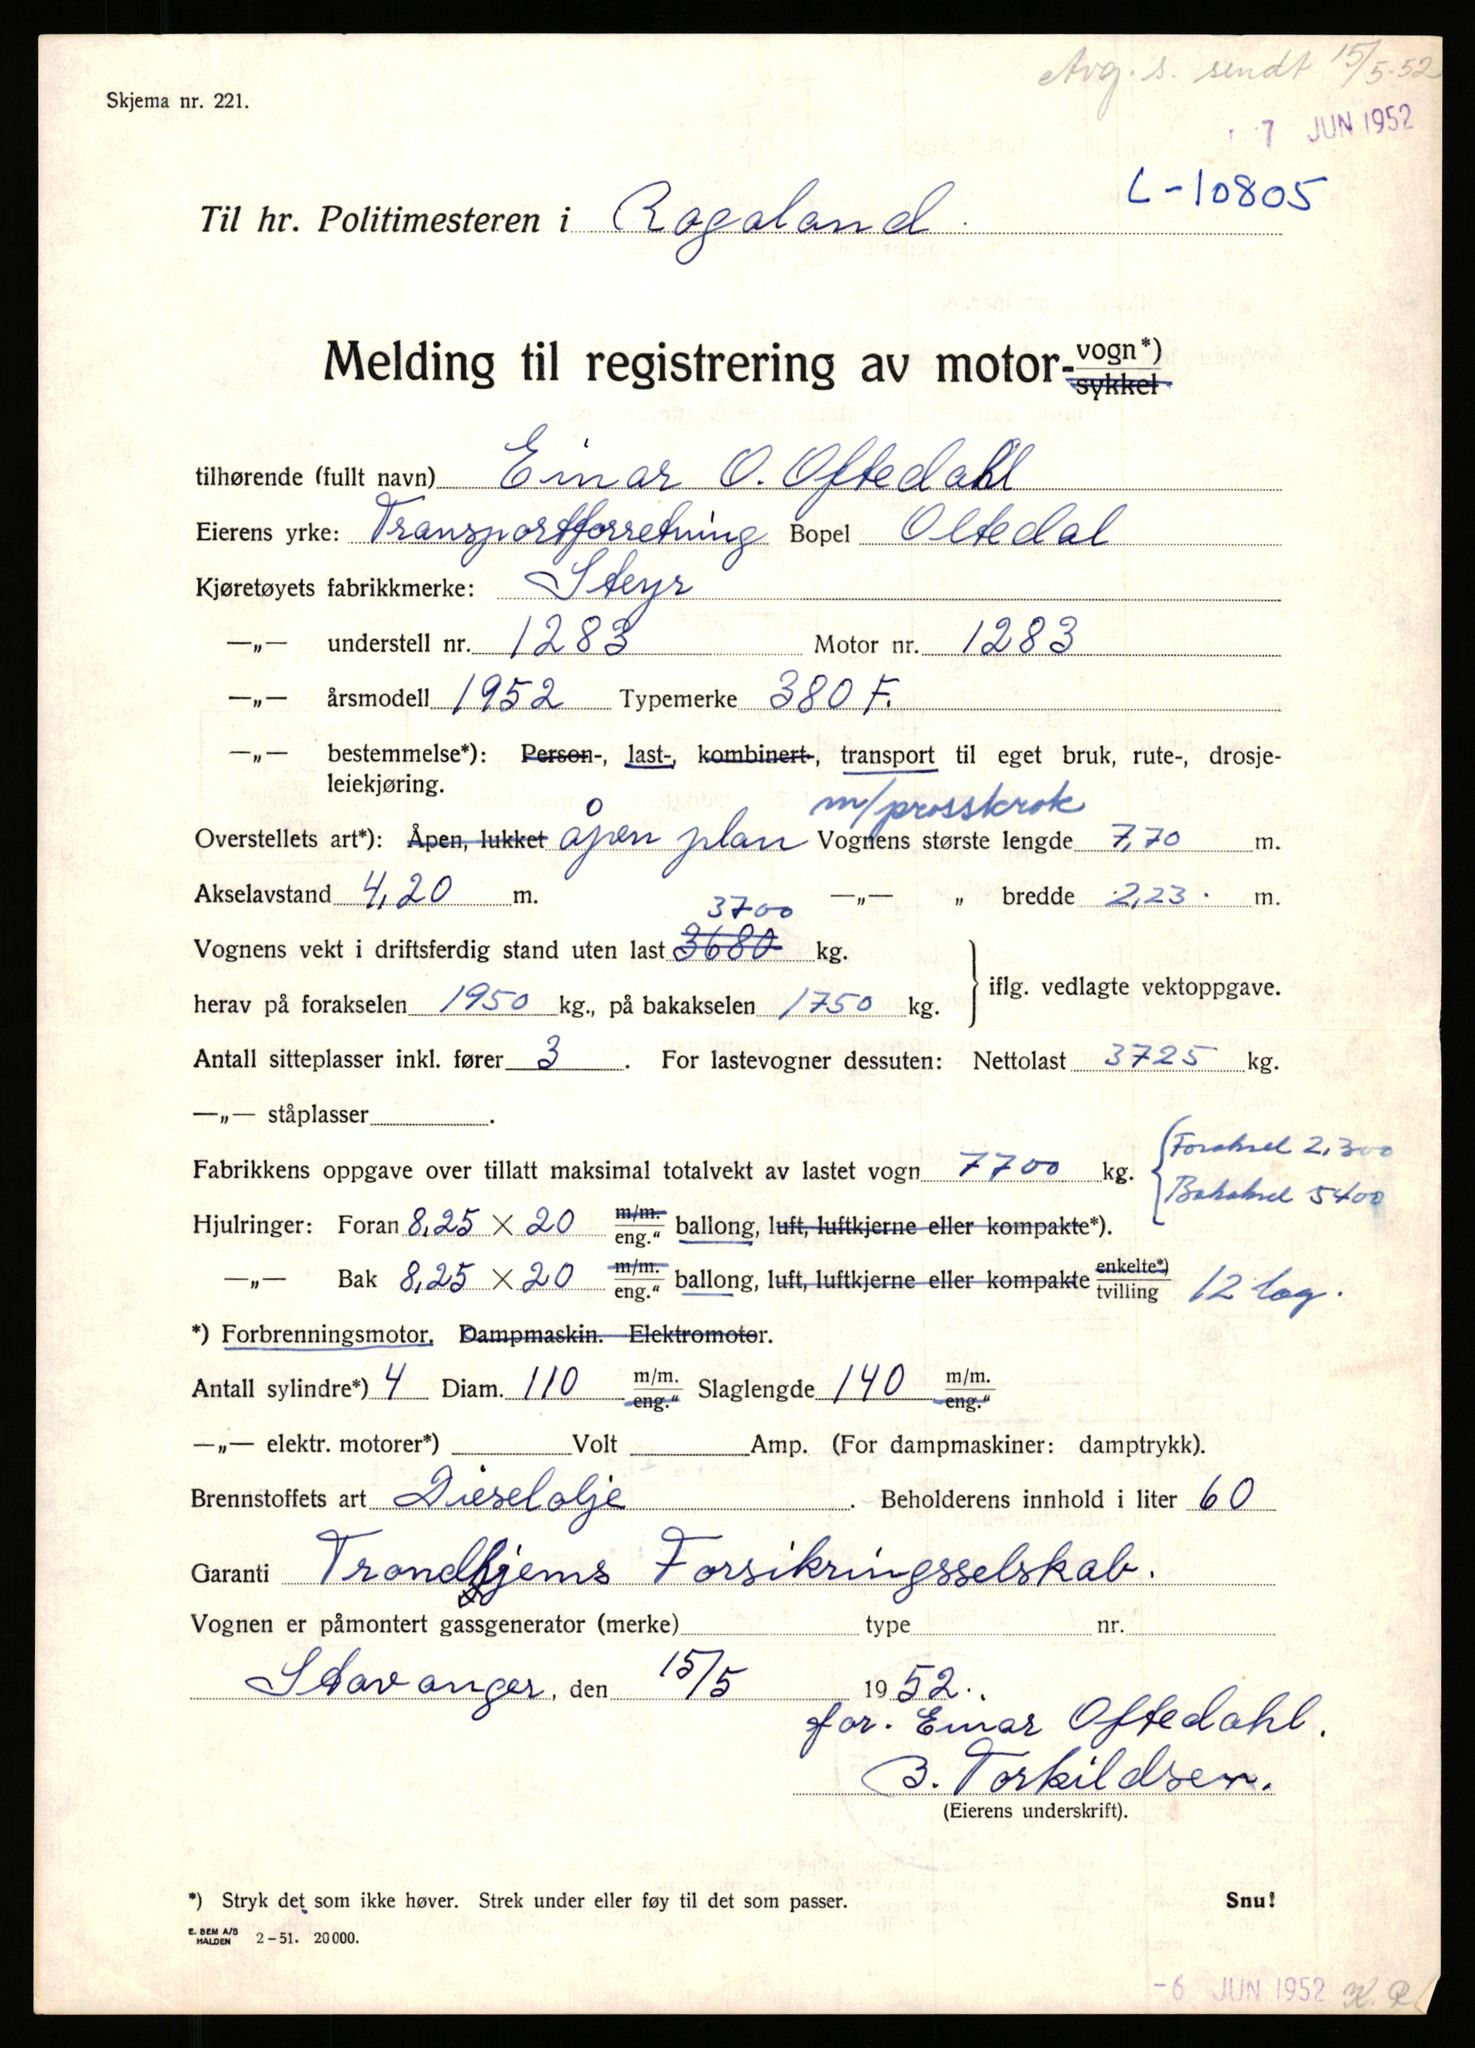 Avg. s. sendt 15/5-52
Skjema nr. 221.
7 JUN 1952
L-10805
Til hr. Politimesteren i Rogaland.
Melding til registrering av motor-vogn*)
sykkel
tilhørende (fullt navn) Einar O. Oftedahl
Eierens yrke: Transportforretning Bopel Oltedal
Kjøretøyets fabrikkmerke: Steyr
—„— understell nr. 1283 Motor nr. 1283
—„— årsmodell 1952 Typemerke 380 F.
—„— bestemmelse*): Person-, last-, kombinert-, transport til eget bruk, rute-, drosje-
leiekjøring.
m/prosskrok
Overstellets art*): Åpen, lukket åpen plan Vognens største lengde 7,70 m.
Akselavstand 4,20 m. —„— „ bredde 2,23. m.
3700
Vognens vekt i driftsferdig stand uten last 3680 kg.
iflg. vedlagte vektoppgave.
herav på forakselen 1950 kg., på bakakselen 1750 kg.
Antall sitteplasser inkl. fører 3. For lastevogner dessuten: Nettolast 3725 kg.
—„— ståplasser .
Fabrikkens oppgave over tillatt maksimal totalvekt av lastet vogn 7700 kg. Foraksel 2,300
Bakaksel 5400
Hjulringer: Foran 8,25 × 20 m/m. eng.“ ballong, luft, luftkjerne eller kompakte*).
—„— Bak 8,25 × 20 m/m. eng.“ ballong, luft, luftkjerne eller kompakte enkelte*) tvilling 12 lag.
*) Forbrenningsmotor. Dampmaskin. Elektromotor.
Antall sylindre*) 4 Diam. 110 m/m. eng.“ Slaglengde 140 m/m. eng.“
—„— elektr. motorer*) Volt Amp. (For dampmaskiner: damptrykk).
Brennstoffets art Dieselolje. Beholderens innhold i liter 60
Garanti Trondhjems Forsikringsselskab.
Vognen er påmontert gassgenerator (merke) type nr.
Stavanger, den 15/5 1952.
for. Einar Oftedahl.
B. Torkildsen.
(Eierens underskrift).
*) Stryk det som ikke høver. Strek under eller føy til det som passer. Snu!
E. SEM A/S HALDEN 2-51. 20000.
-6 JUN 1952 K. R.